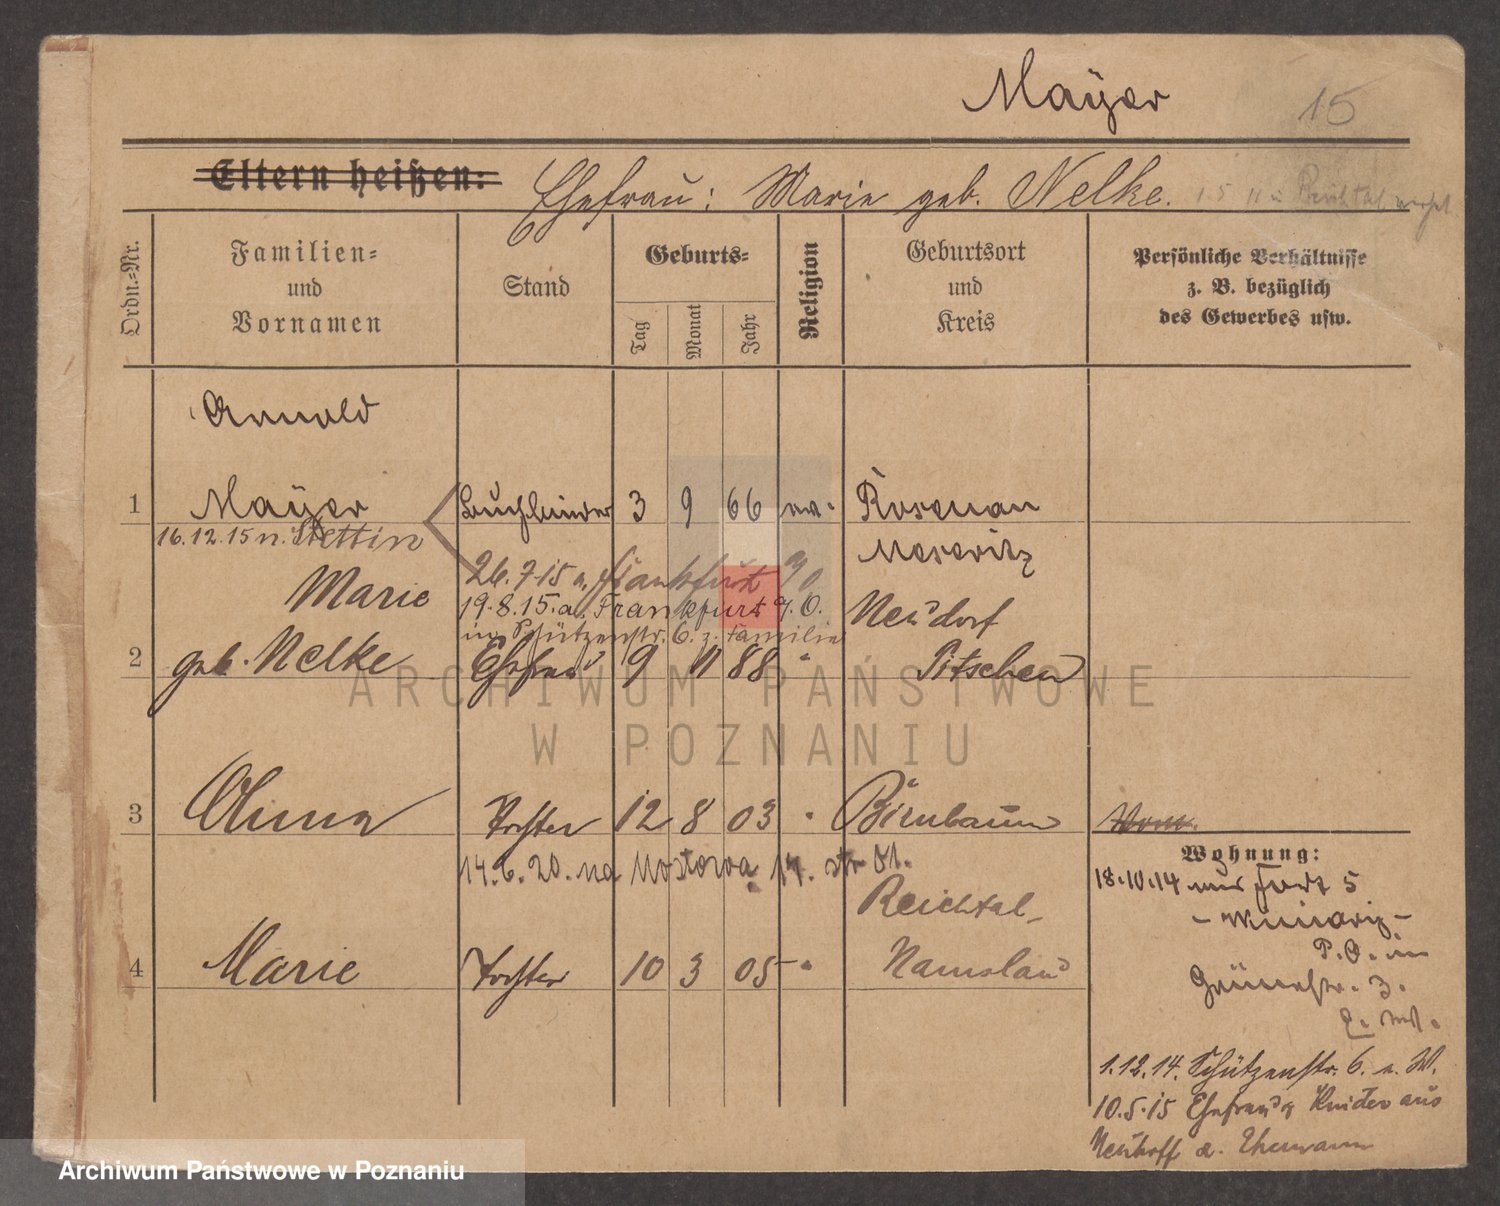 Mayer
15
Eltern heißen: Ehefrau: Marie geb. Nelke.
Ordn.-Nr.
Familien- und Vornamen
Stand
Geburts-
Tag
Monat
Jahr
Religion
Geburtsort und Kreis
Persönliche Verhältnisse z. B. bezüglich des Gewerbes usw.
Arnold
1 Mayer Buchbinder 3 9 66 ev. Rosenau
16.12.15 n. Stettin
Meseritz
26.7.15 n. Frankfurt a/O
Marie 19.8.15. a. Frankfurt a. O. Neudorf
in Schützenstr. 6. z. Familie
2 geb. Nelke Ehefrau 9 11 88 " Pitschen
3 Tochter 12 8 03 " Birnbaum
14.6.20. na Mostowa 17.
Reichtal
4 Marie Tochter 10 3 05 " Namslau
Wohnung:
18.10.14 aus Fort 5
P.O. in
Grünestr. 3.
1.12.14. Schützenstr. 6. a. W.
10.5.15 Ehefrau u Kinder aus
Neuhoff z. Ehemann
ARCHIWUM PAŃSTWOWE
W POZNANIU
Archiwum Państwowe w Poznaniu